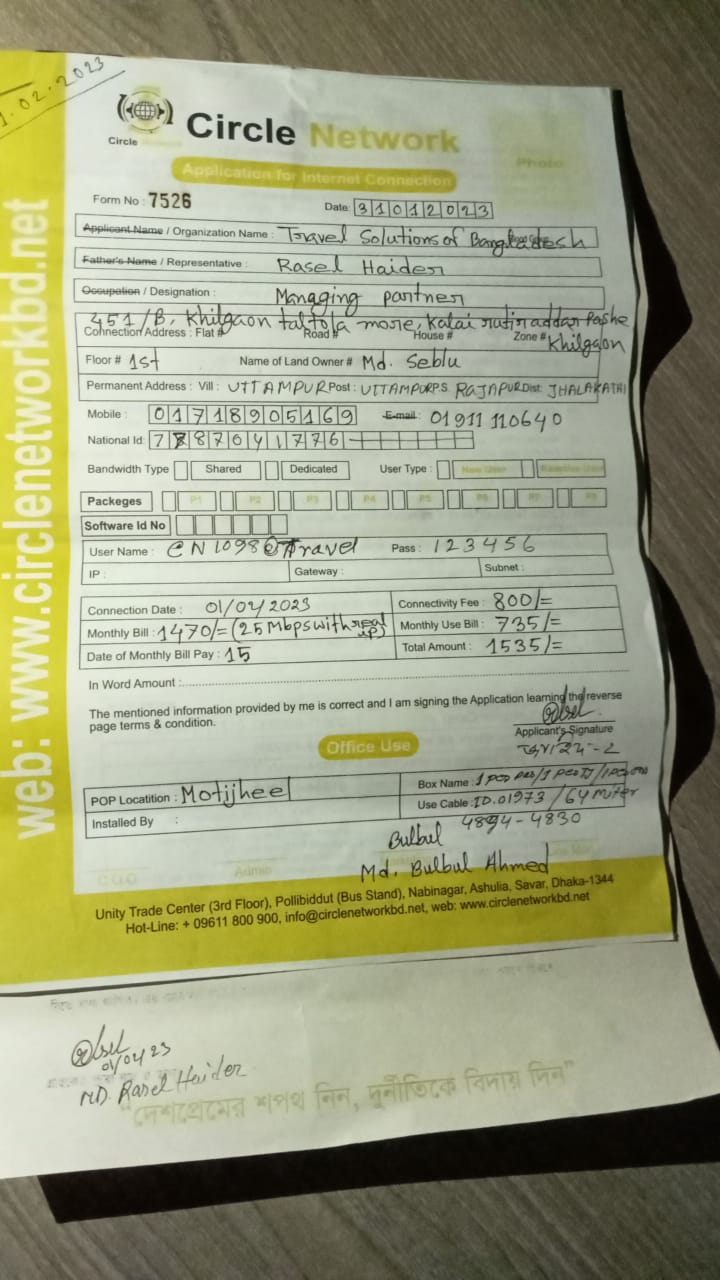 .02.2023
Circle
Circle Network
Application for Internet Connection
Photo
web: www.circlenetworkbd.net
Form No : 7526
Date 31012023
Applicant Name / Organization Name : Travel Solutions of Bangladesh
Father's Name / Representative : Rasel Haider
Occupation / Designation : Managing partner
451/B, Khilgaon taltola more, Kalai rutir addar Pashe
Connection Address : Flat # Road # House # Zone # Khilgaon
Floor # 1st Name of Land Owner # Md. Seblu
Permanent Address : Vill : UTTAMPUR Post : UTTAMPUR P.S RAJAPUR Dist: JHALAKATHI
Mobile : 01718905169 E-mail: 01911 110640
National Id: 7787041776
Bandwidth Type Shared Dedicated User Type : New User
Packeges P1 P2 P3 P4 P5 P6 P7 P8
Software Id No
User Name : CN1098@Travel Pass : 123456
IP : Gateway : Subnet :
Connection Date : 01/04/2023 Connectivity Fee : 800/=
Monthly Bill : 1470/= (25 Mbps with real ip) Monthly Use Bill : 735/=
Date of Monthly Bill Pay : 15 Total Amount : 1535/=
In Word Amount :
The mentioned information provided by me is correct and I am signing the Application learning the reverse
page terms & condition.
Applicant's Signature
Office Use
POP Locatition : Motijheel Box Name :
Installed By : Use Cable : ID.01973 / 64 miter
4894-4830
Bulbul
Md. Bulbul Ahmed
C.O.O Admin
Unity Trade Center (3rd Floor), Pollibiddut (Bus Stand), Nabinagar, Ashulia, Savar, Dhaka-1344
Hot-Line: + 09611 800 900, info@circlenetworkbd.net, web: www.circlenetworkbd.net
01/04/23
MD. Rasel Haider
"দেশপ্রেমের শপথ নিন, দুর্নীতিকে বিদায় দিন"